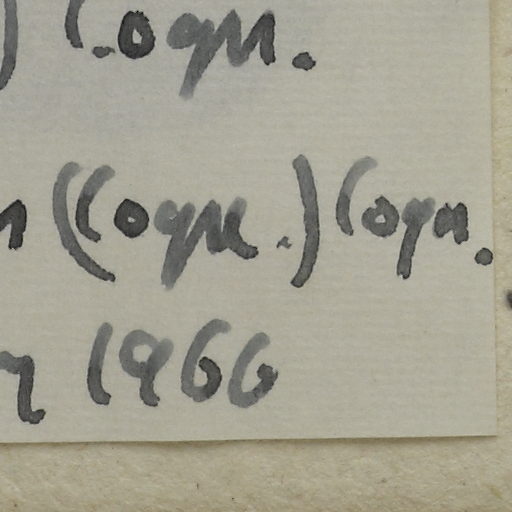 ) Cogn.
n (Cogn.) Cogn.
1966